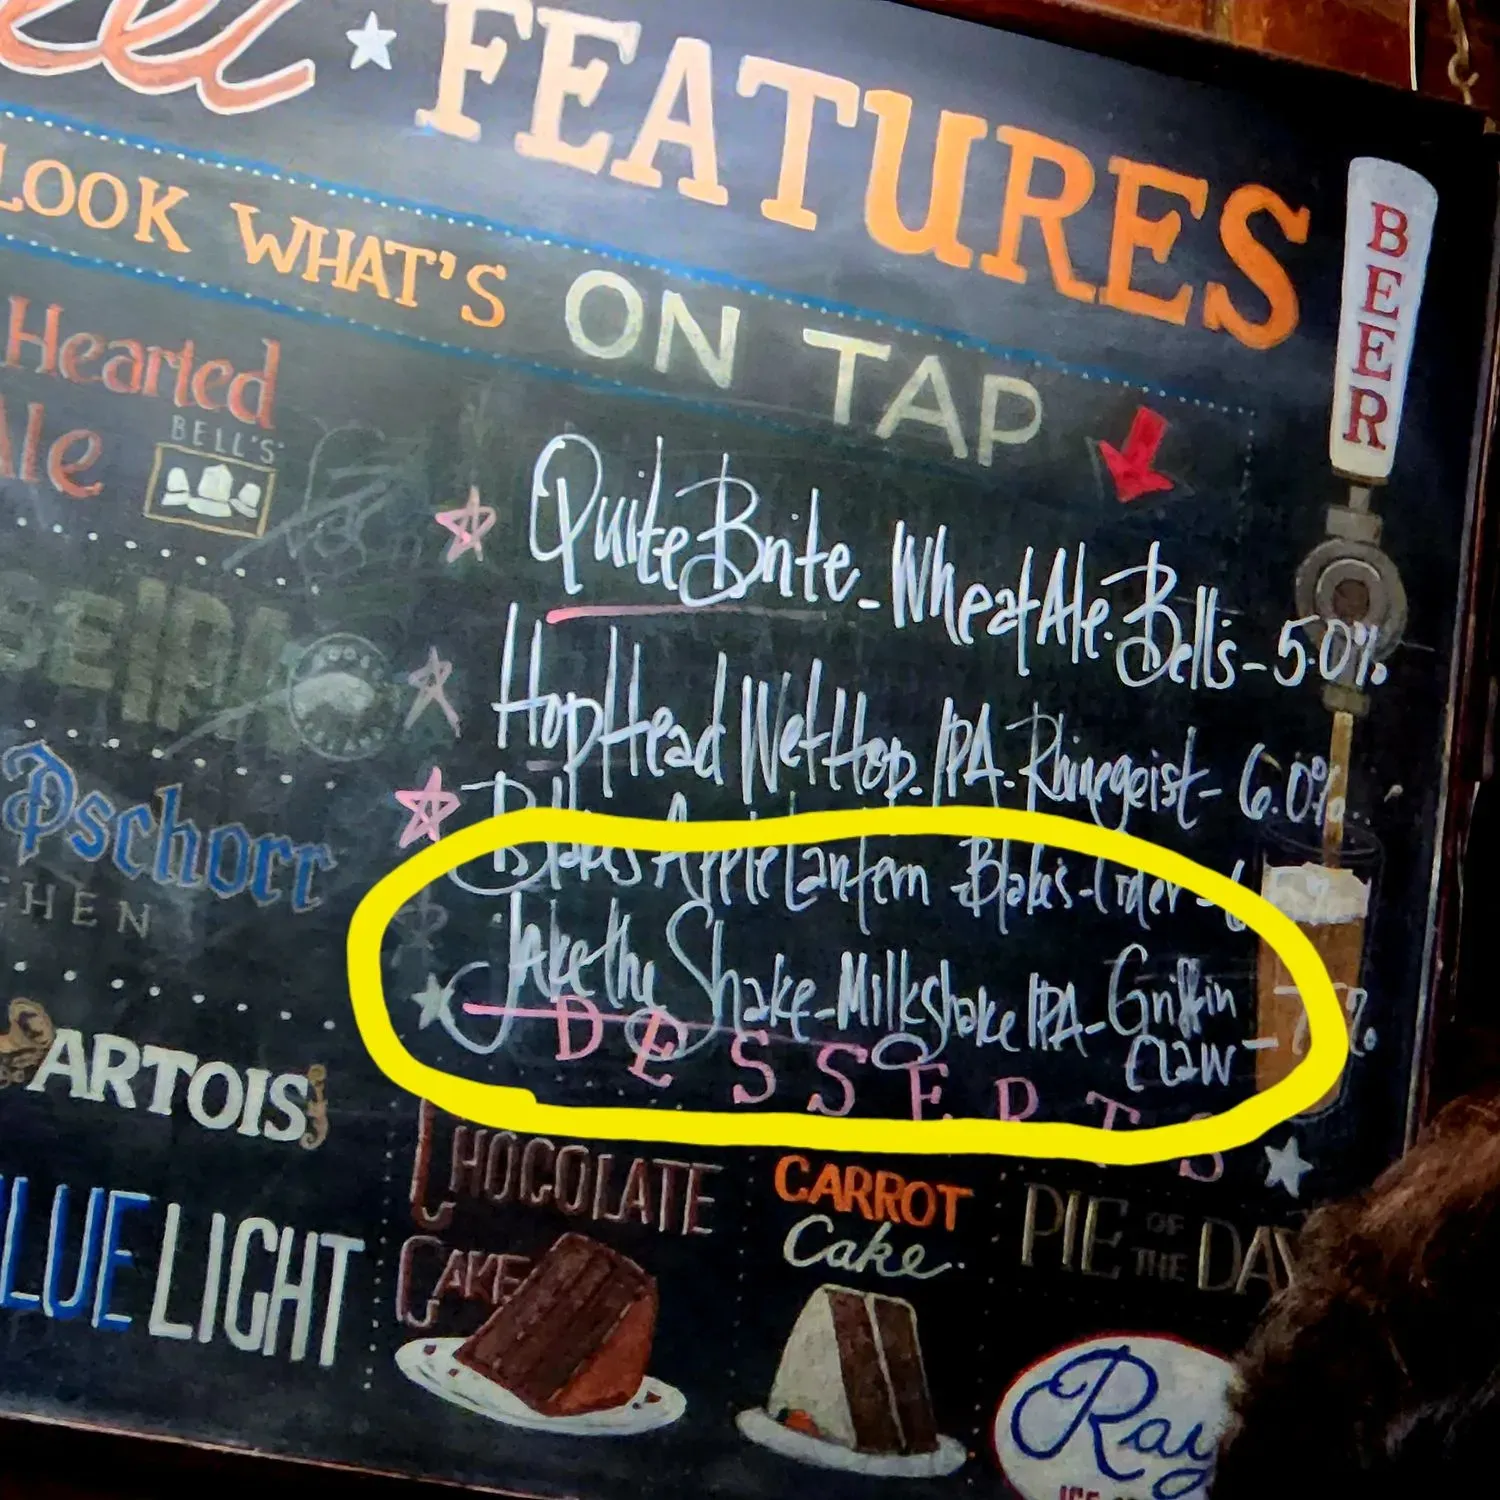 ★ FEATURES
BEER
LOOK WHAT'S ON TAP
Hearted
Ale
BELL'S
Quite Brite - Wheat Ale. Bells - 5.0%
HopHead Wet Hop. IPA - Rhinegeist - 6.0%
Blakes Apple Lantern - Blakes - Cider -
Jake the Shake - Milkshake IPA - Griffin
Claw -
Pschorr
DESSERTS
ARTOIS
BLUE LIGHT
CHOCOLATE
CAKE
CARROT
Cake
PIE OF THE DAY
Ray